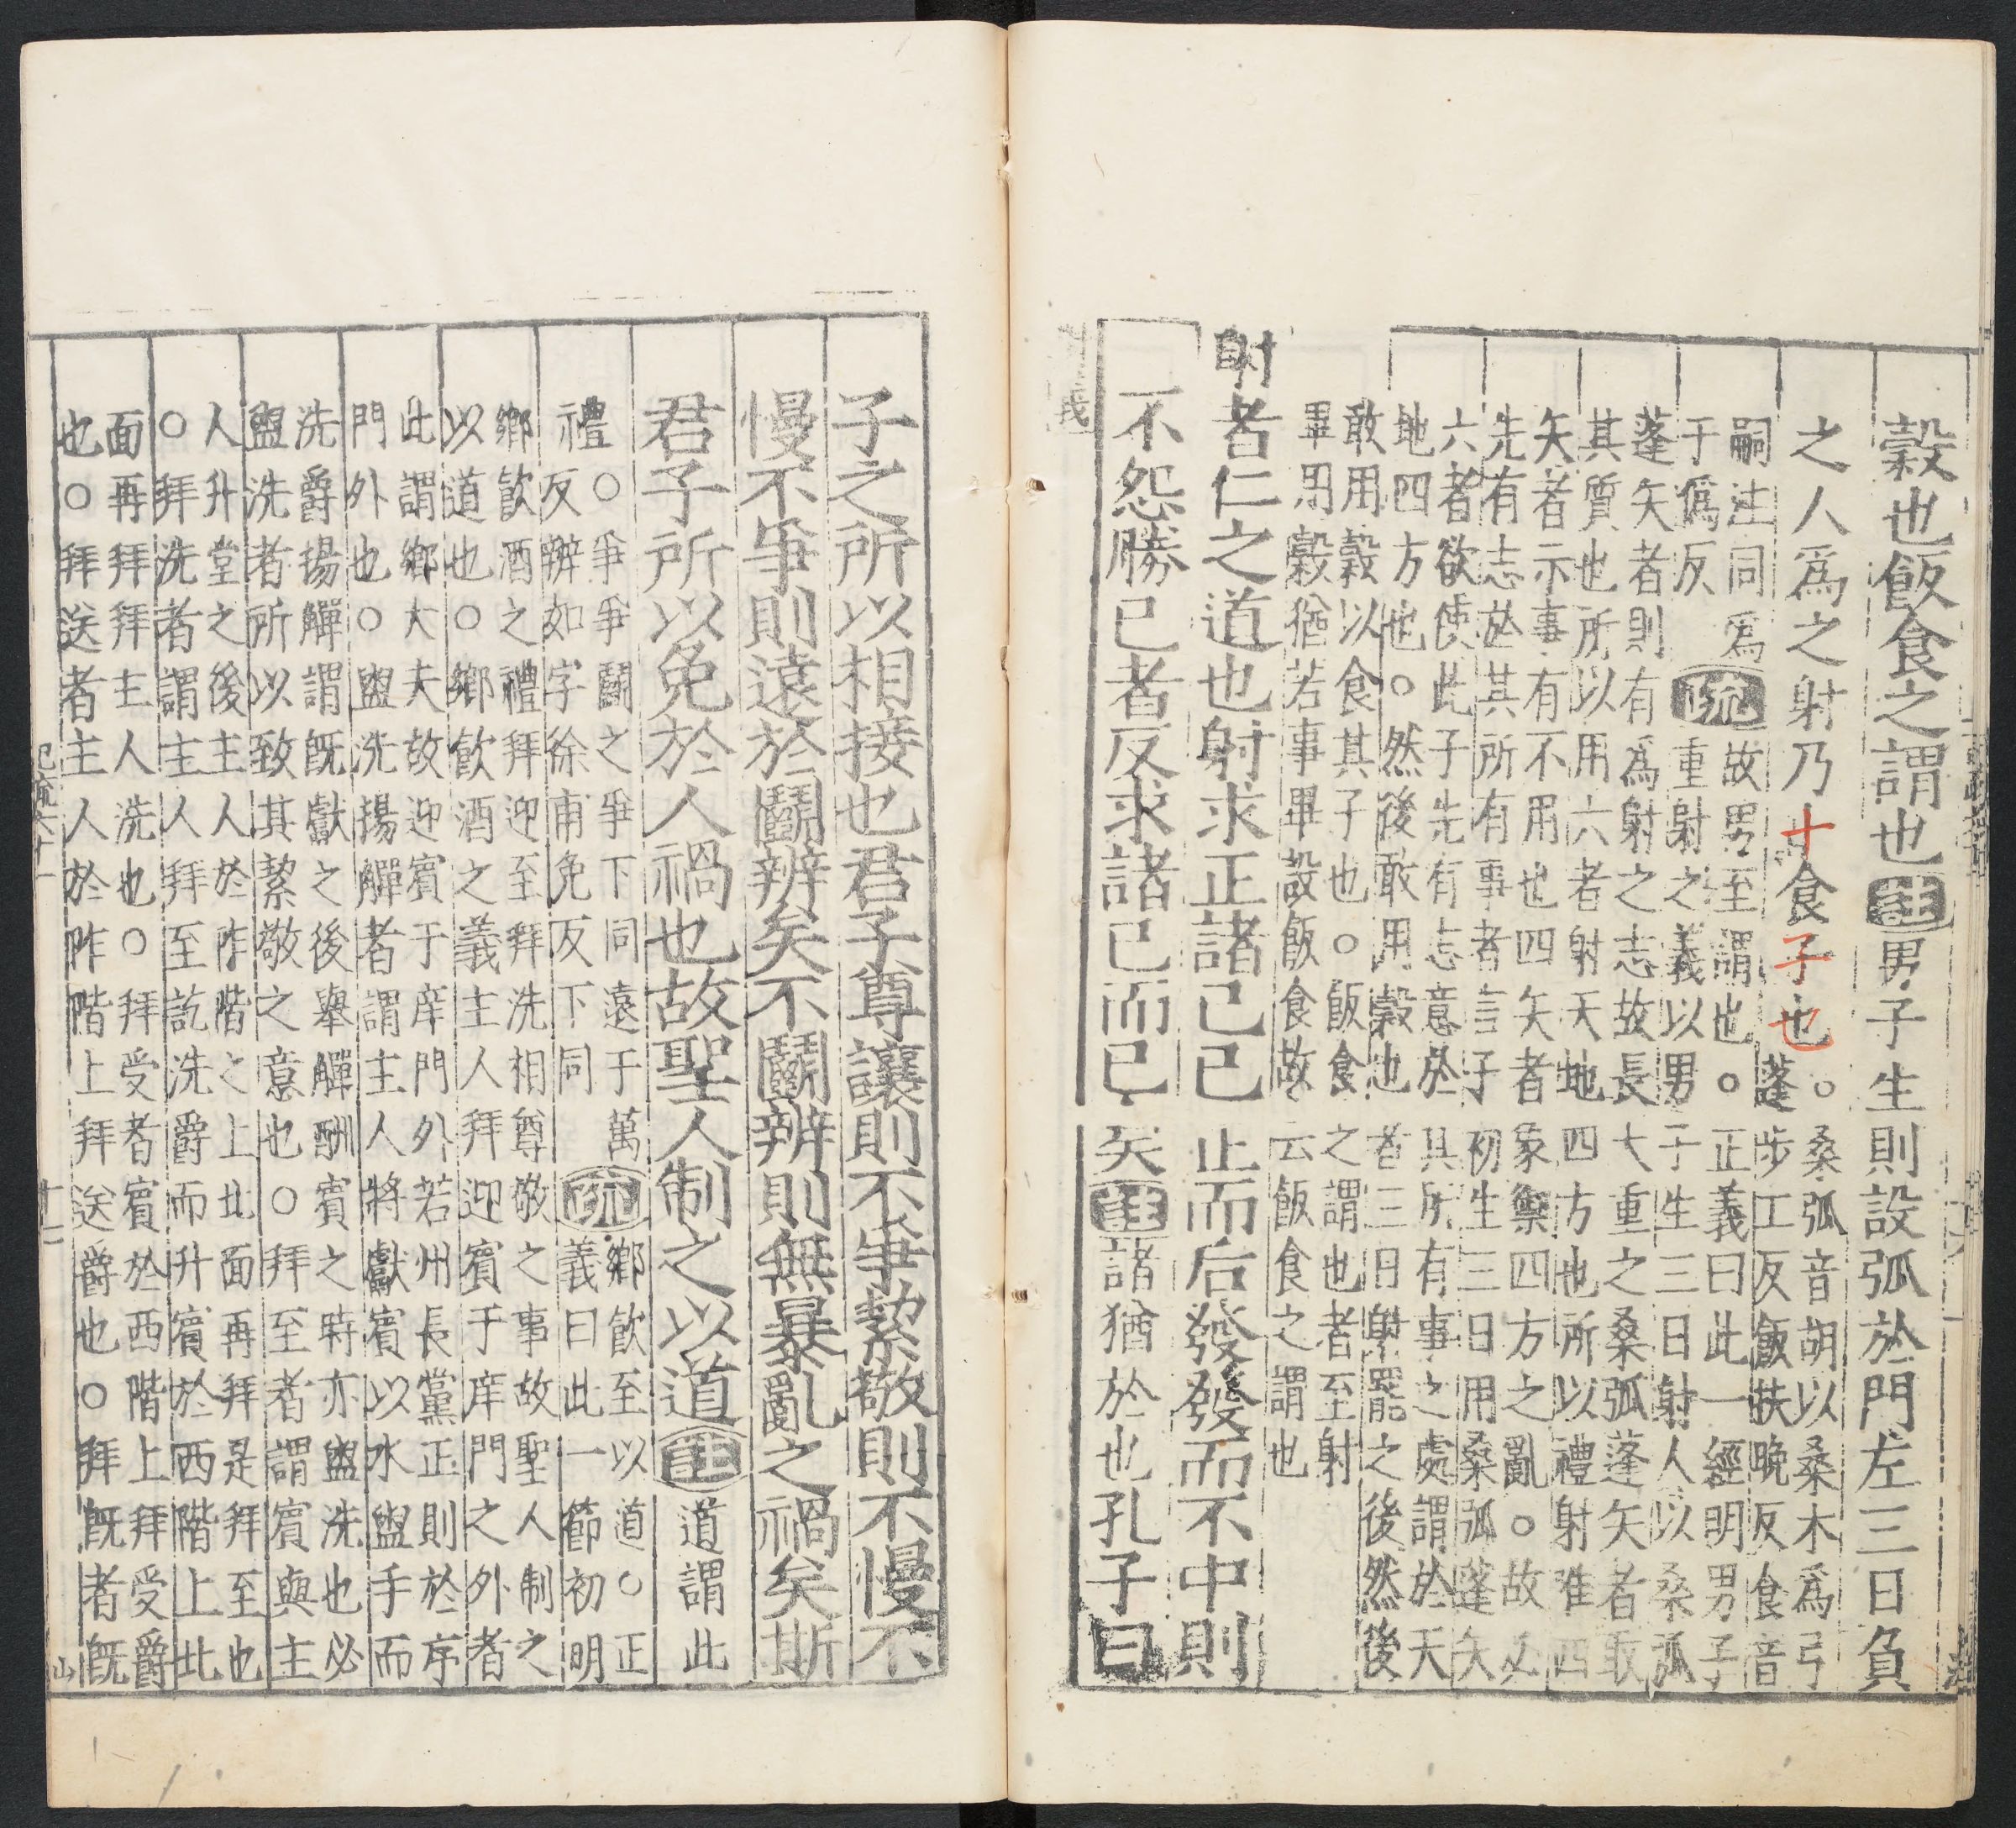 穀也飯食之謂也注男子生則設弧於門左三日負
之人爲之射乃十食子也。桑弧音胡以桑木爲弓
蓬步工反飯扶晚反食音
嗣注同爲
于僞反疏故男至謂也。正義曰此一經明男子
重射之義以男子生三日射人以桑弧
蓬矢者則有爲射之志故長大重之桑弧蓬矢者取
其質也所以用六者射天地四方也所以禮射唯四
矢者示事有不用也四矢者象禦四方之亂。故必
先有志於其所有事者言子初生三日用桑弧蓬矢
六者欲使此子先有志意於其所有事之處謂於天
地四方也。然後敢用穀也者三日射罷之後然後
敢用穀以食其子也。飯食之謂也者至射
畢用穀猶若事畢設飯食故云飯食之謂也
射者仁之道也射求正諸己己止而后發發而不中則
不怨勝己者反求諸己而已矣注諸猶於也孔子曰
射義
子之所以相接也君子尊讓則不爭絜敬則不慢不
慢不爭則遠於鬭辨矣不鬭辨則無暴亂之禍矣斯
君子所以免於人禍也故聖人制之以道注道謂此
禮。爭爭鬭之爭下同遠于萬
反辨如字徐甫免反下同疏鄉飲至以道。正
義曰此一節初明
鄉飲酒之禮拜迎至拜洗相尊敬之事故聖人制之
以道也。鄉飲酒之義主人拜迎賓于庠門之外者
此謂鄉大夫故迎賓于庠門外若州長黨正則於序
門外也。盥洗揚觶者謂主人將獻賓以水盥手而
洗爵揚觶謂既獻之後舉觶酬賓之時亦盥洗也必
盥洗者所以致其絜敬之意也。拜至者謂賓與主
人升堂之後主人於阼階之上北面再拜是拜至也
。拜洗者謂主人拜至訖洗爵而升賓於西階上北
面再拜拜主人洗也。拜受者賓於西階上拜受爵
也。拜送者主人於阼階上拜送爵也。拜既者既
記疏六十一
十一
山